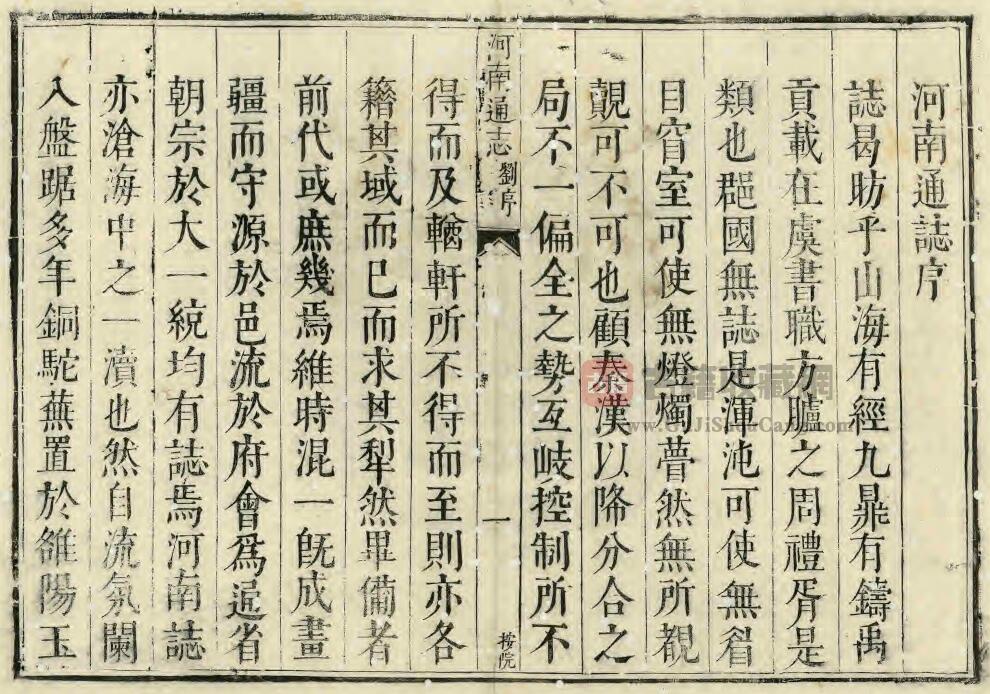 河南通誌序
誌曷昉乎山海有經九鼎有鑄禹
貢載在虞書職方臚之周禮胥是
類也郡國無誌是渾沌可使無眉
目窅室可使無燈燭瞢然無所覩
覿可不可也顧秦漢以降分合之
局不一偏全之勢互岐控制所不
河南通志
劉序
一
按院
得而及輶軒所不得而至則亦各
籍其域而已而求其犁然畢備者
前代或庶幾焉維時混一旣成畫
疆而守源於邑流於府會爲通省
朝宗於大一統均有誌焉河南誌
亦滄海中之一瀆也然自流氛闌
入盤踞多年銅駝蕪置於雒陽玉
www.GuJiShuCang.com